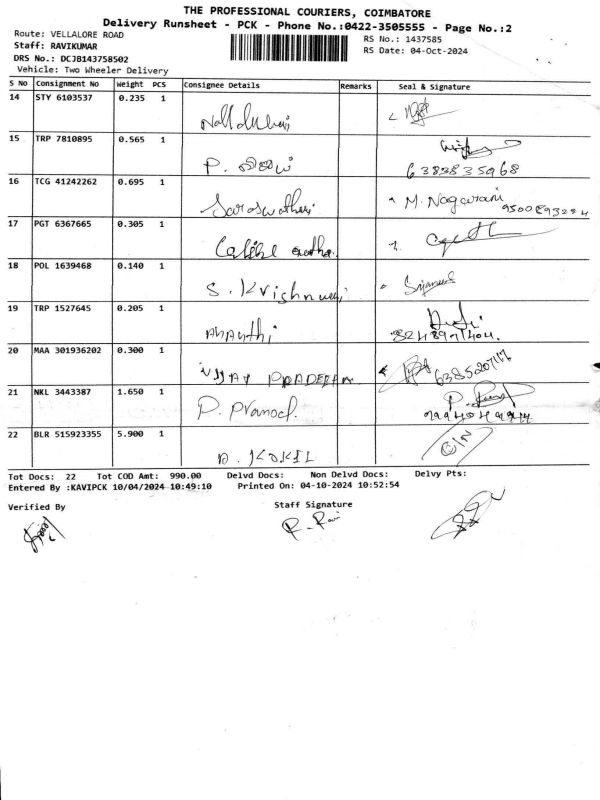 THE PROFESSIONAL COURIERS, COIMBATORE
Delivery Runsheet - PCK - Phone No.:0422-3505555 - Page No.:2
Route: VELLALORE ROAD
RS No.: 1437585
Staff: RAVIKUMAR
RS Date: 04-Oct-2024
DRS No.: DCJB143758502
Vehicle: Two Wheeler Delivery
S No Consignment No Weight PCS Consignee Details Remarks Seal & Signature
14 STY 6103537 0.235 1
15 TRP 7810895 0.565 1 P.
6383835968
16 TCG 41242262 0.695 1 Saraswathi M. Nagarani
17 PGT 6367665 0.305 1
18 POL 1639468 0.140 1 S. Krishnaveni
19 TRP 1527645 0.205 1 Ananthi
8248971404
20 MAA 301936202 0.300 1 VIJAY PRADEEPAN
21 NKL 3443387 1.650 1 P. Pranod.
22 BLR 515923355 5.900 1 A. KOKIL
Tot Docs: 22 Tot COD Amt: 990.00 Delvd Docs: Non Delvd Docs: Delvy Pts:
Entered By :KAVIPCK 10/04/2024 10:49:10 Printed On: 04-10-2024 10:52:54
Verified By Staff Signature
R. Ravi